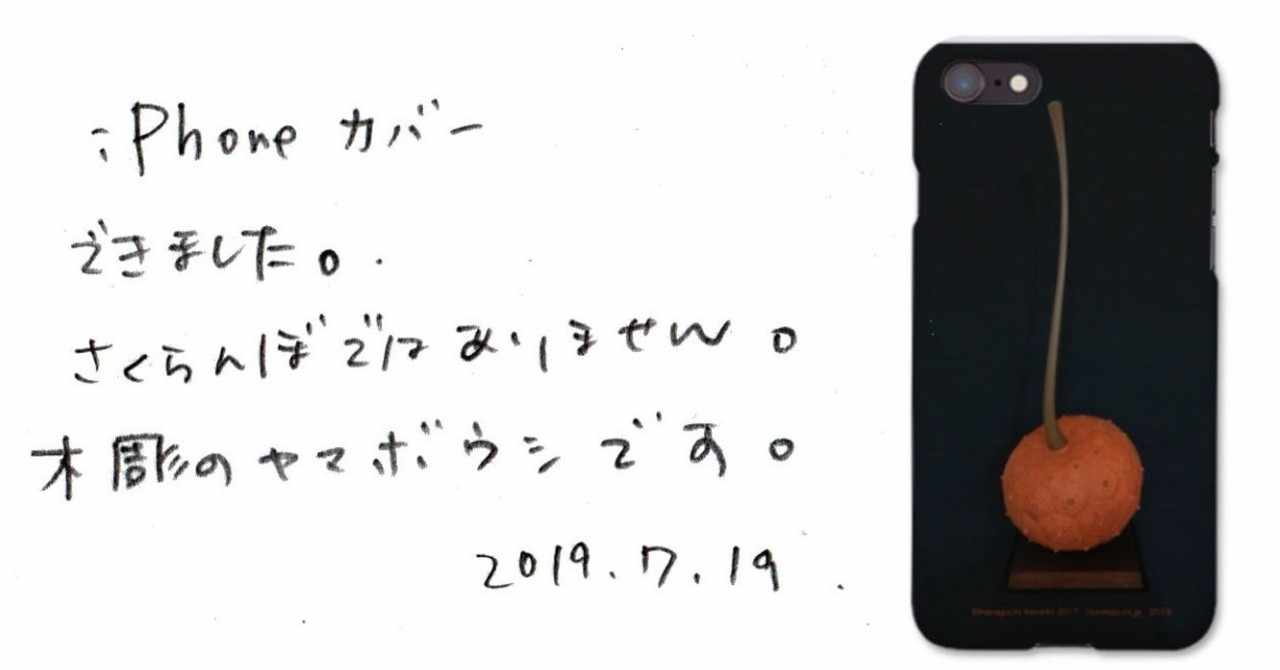 iPhone カバー
できました。
さくらんぼではありません。
木彫のヤマボウシです。
2019.7.19.